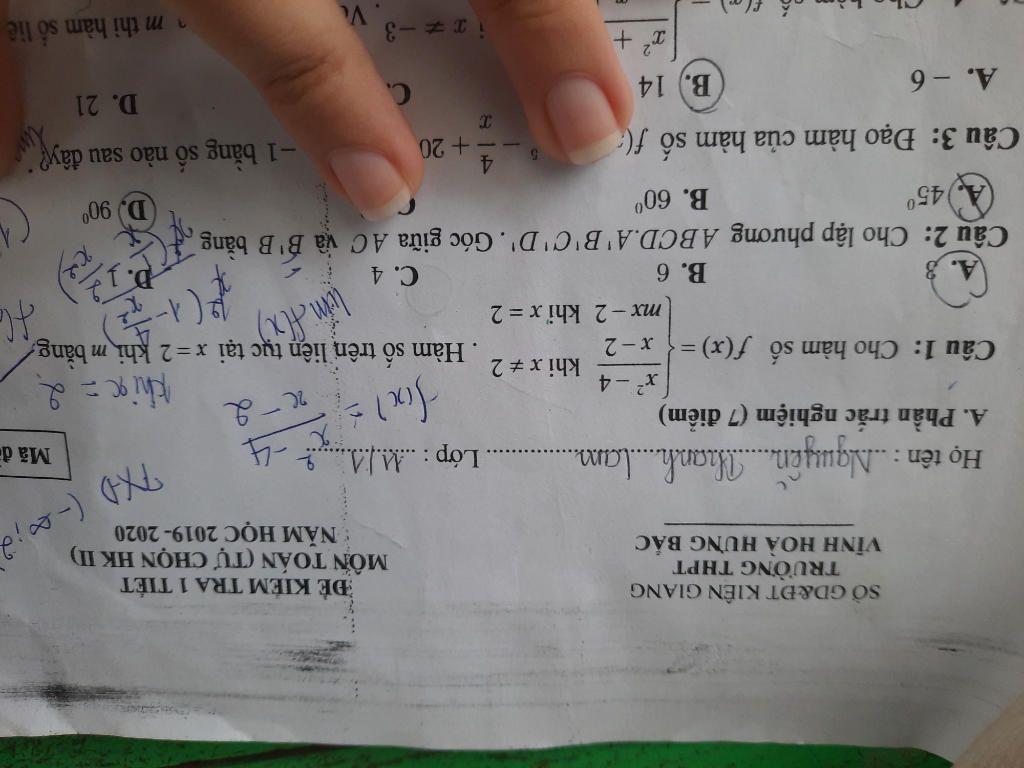 SỞ GD&ĐT KIÊN GIANG
TRƯỜNG THPT
VĨNH HOÀ HƯNG BẮC
ĐỀ KIỂM TRA 1 TIẾT
MÔN TOÁN (TỰ CHỌN HK II)
NĂM HỌC 2019- 2020
TXD
(-∞; 2
Họ tên : Nguyễn Thanh Lam Lớp : 11/1
Mã đề
A. Phần trắc nghiệm (7 điểm)
f(x) = x² - 4 / x - 2
khi x = 2
Câu 1: Cho hàm số f(x) = { x² − 4 / x − 2 khi x ≠ 2
mx − 2 khi x = 2
. Hàm số trên liên tục tại x = 2 khi m bằng
lim f(x)
A. 3 B. 6 C. 4 D. 1
Câu 2: Cho lập phương ABCD.A'B'C'D'. Góc giữa AC và B'B bằng
A. 45⁰ B. 60⁰ D. 90⁰
Câu 3: Đạo hàm của hàm số f( − 4/x + 20 −1 bằng số nào sau đây?
A. − 6 B. 14 C. D. 21
x² +
x ≠ −3
m thì hàm số liê